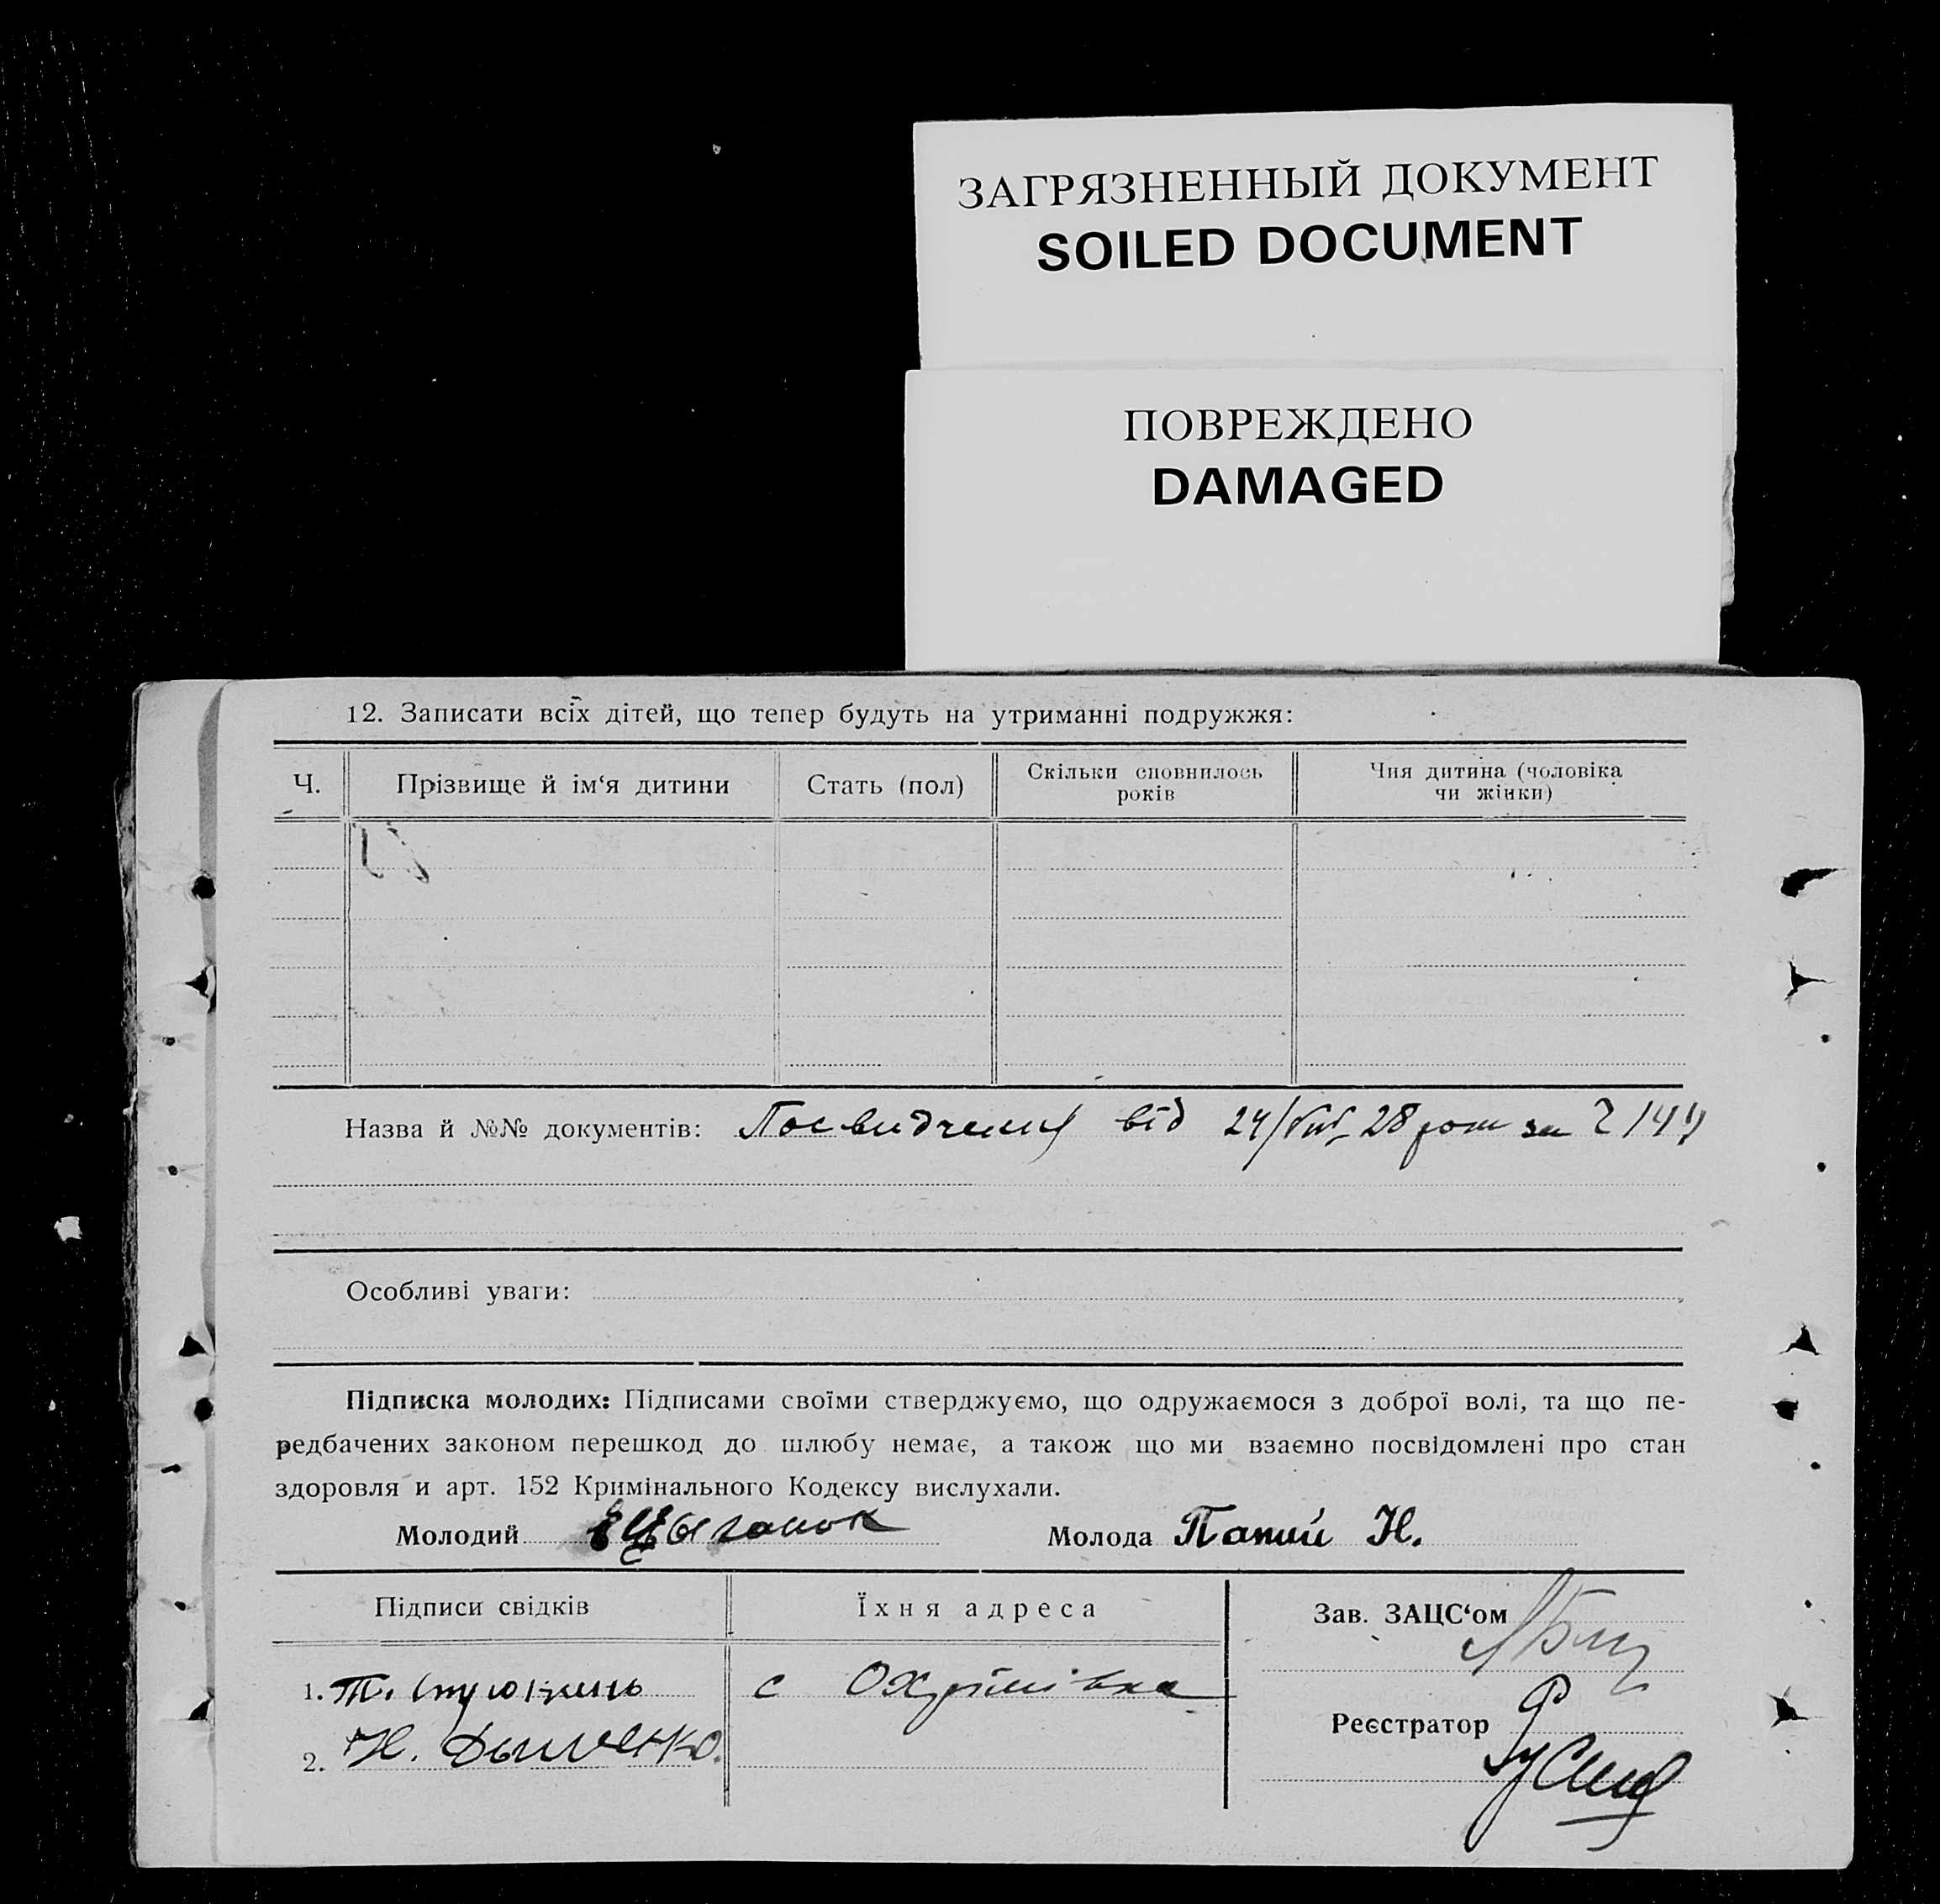 ЗАГРЯЗНЕННЫЙ ДОКУМЕНТ
SOILED DOCUMENT
ПОВРЕЖДЕНО
DAMAGED
12. Записати всіх дітей, що тепер будуть на утриманні подружжя:
Ч. Прізвище й ім‘я дитини Стать (пол) Скільки сповнилось років Чия дитина (чоловіка чи жінки)
Назва й №№ документів: Посвидчення від 24/VIII 28 року за
Особливі уваги:
Підписка молодих: Підписами своїми стверджуємо, що одружаємося з доброї волі, та що пе-
редбачених законом перешкод до шлюбу немає, а також що ми взаємно посвідомлені про стан
здоровля и арт. 152 Кримінального Кодексу вислухали.
Молодий Цыганок Молода Папий Н.
Підписи свідків Їхня адреса Зав. ЗАЦС‘ом
1. Т. с Охрімівка
Реєстратор
2. Н.